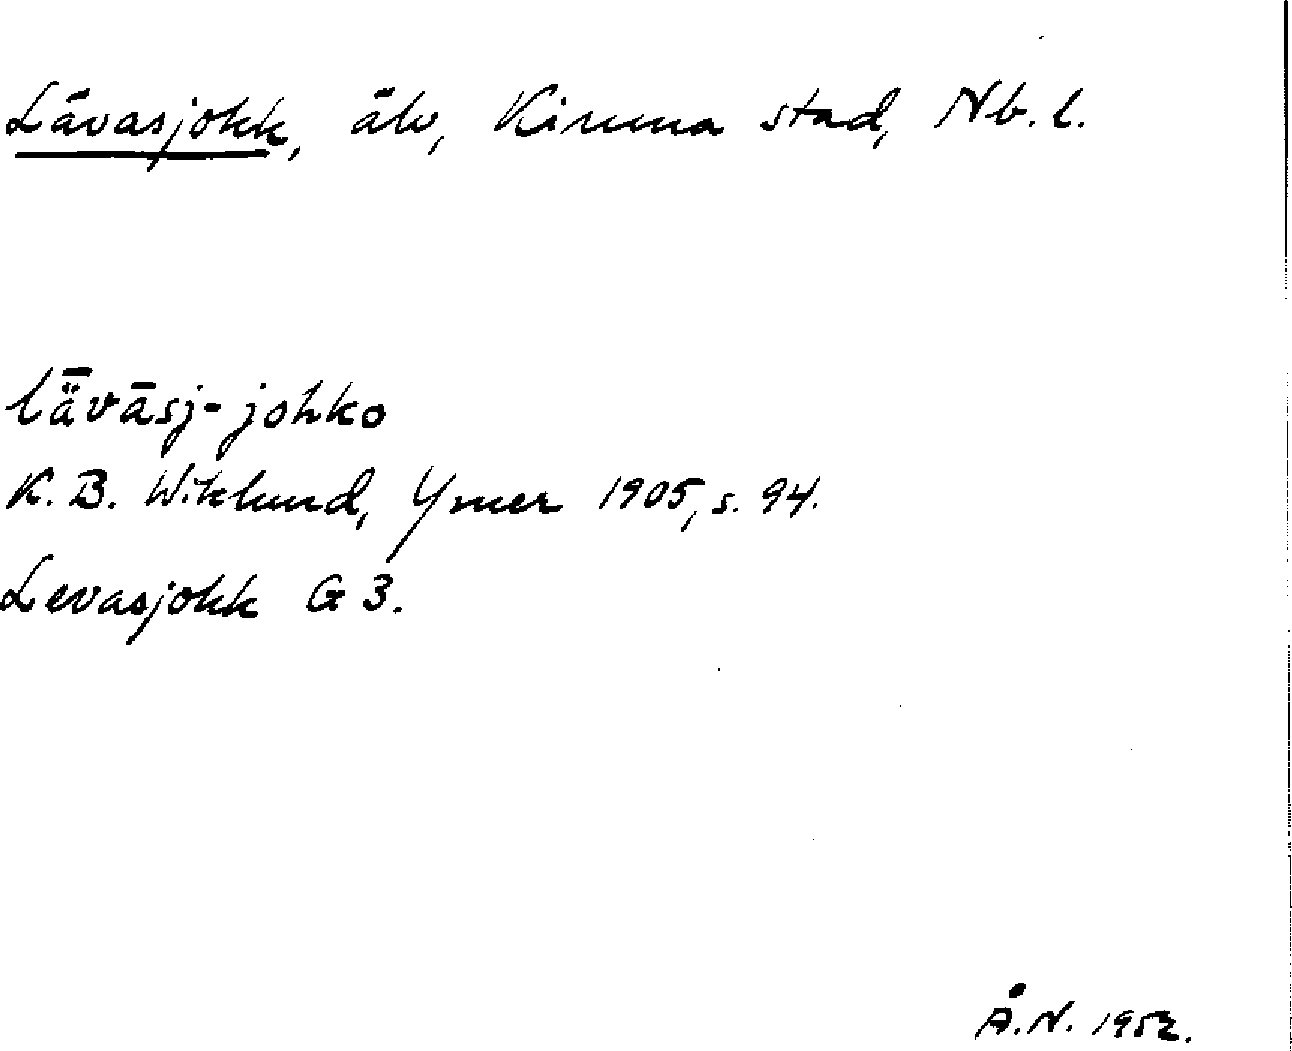 Lävasjokk, älv, Kiruna stad, Nb. l.
lǟvāsj-johko
K. B. Wiklund, Ymer 1905, s. 94.
Levasjokk G 3.
Å. N. 1952.